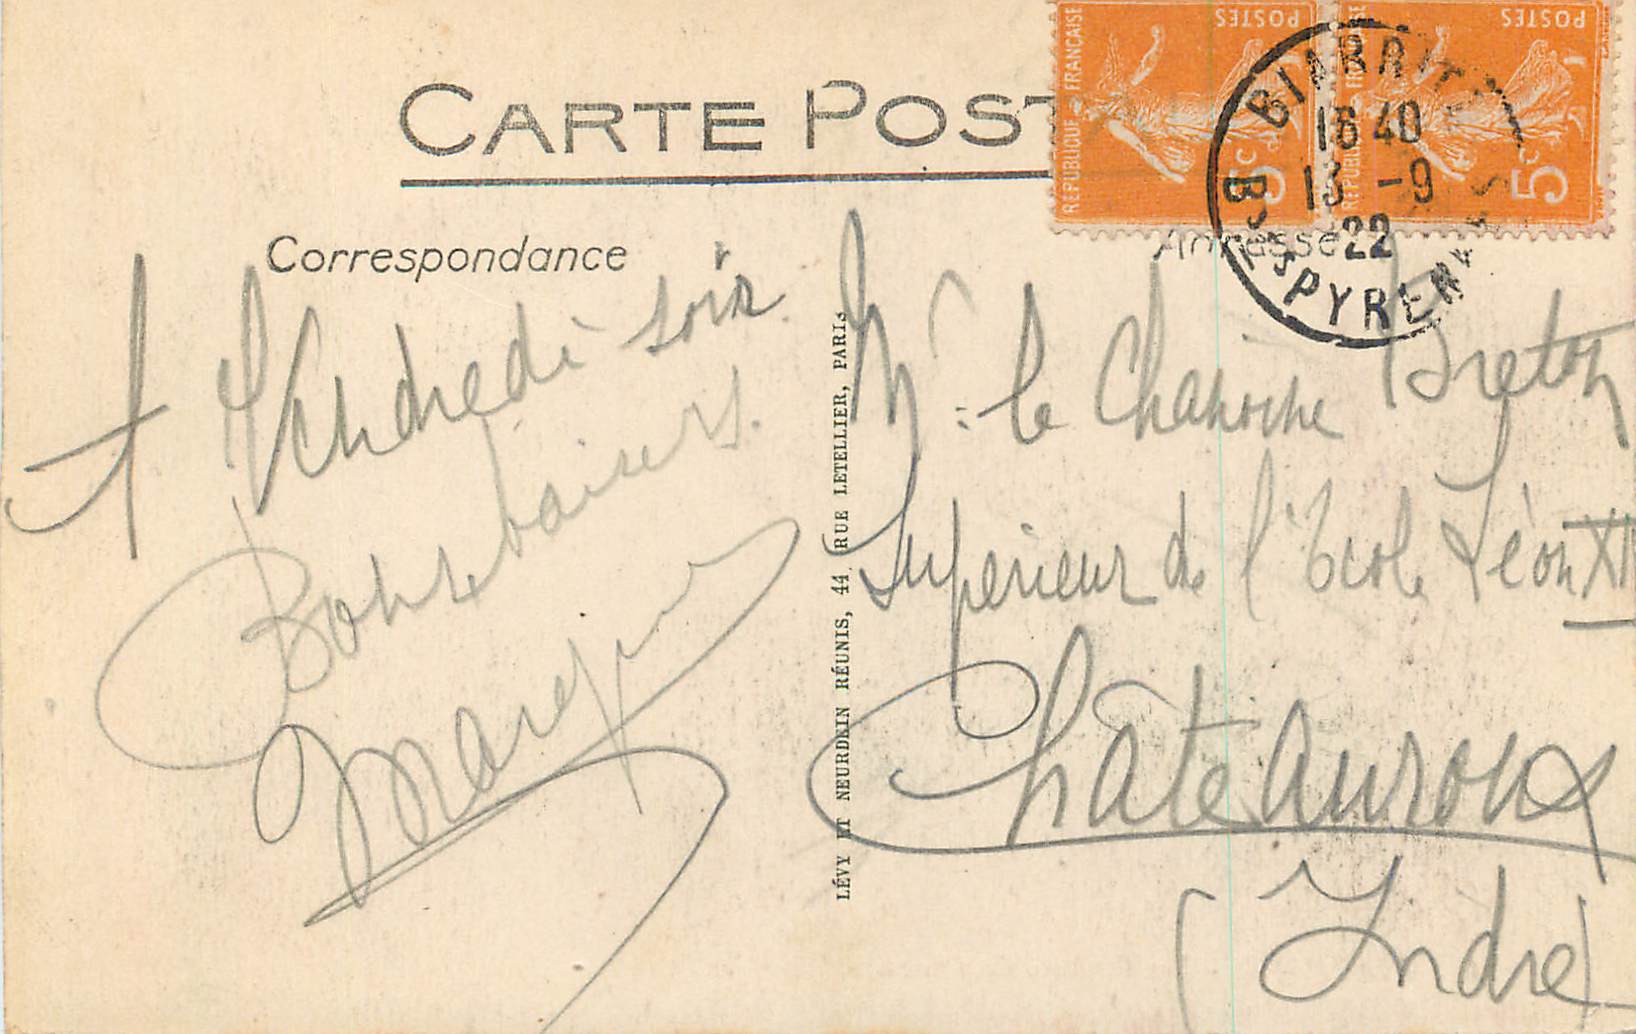 CARTE POST
Correspondance
A Vendredi soir.
Bons baisers.
LÉVY ET NEURDEIN RÉUNIS, 44, RUE LETELLIER, PARIS
POSTES
REPUBLIQUE FRANÇAISE
5c
POSTES
REPUBLIQUE FRANÇAISE
5c
BIARRITZ
16 40
13 -9
22
BSES PYRENEES
Adresse
Mr le Chanoine Breton
Supérieur de l'Ecole Léon XIII
Châteauroux
(Indre)